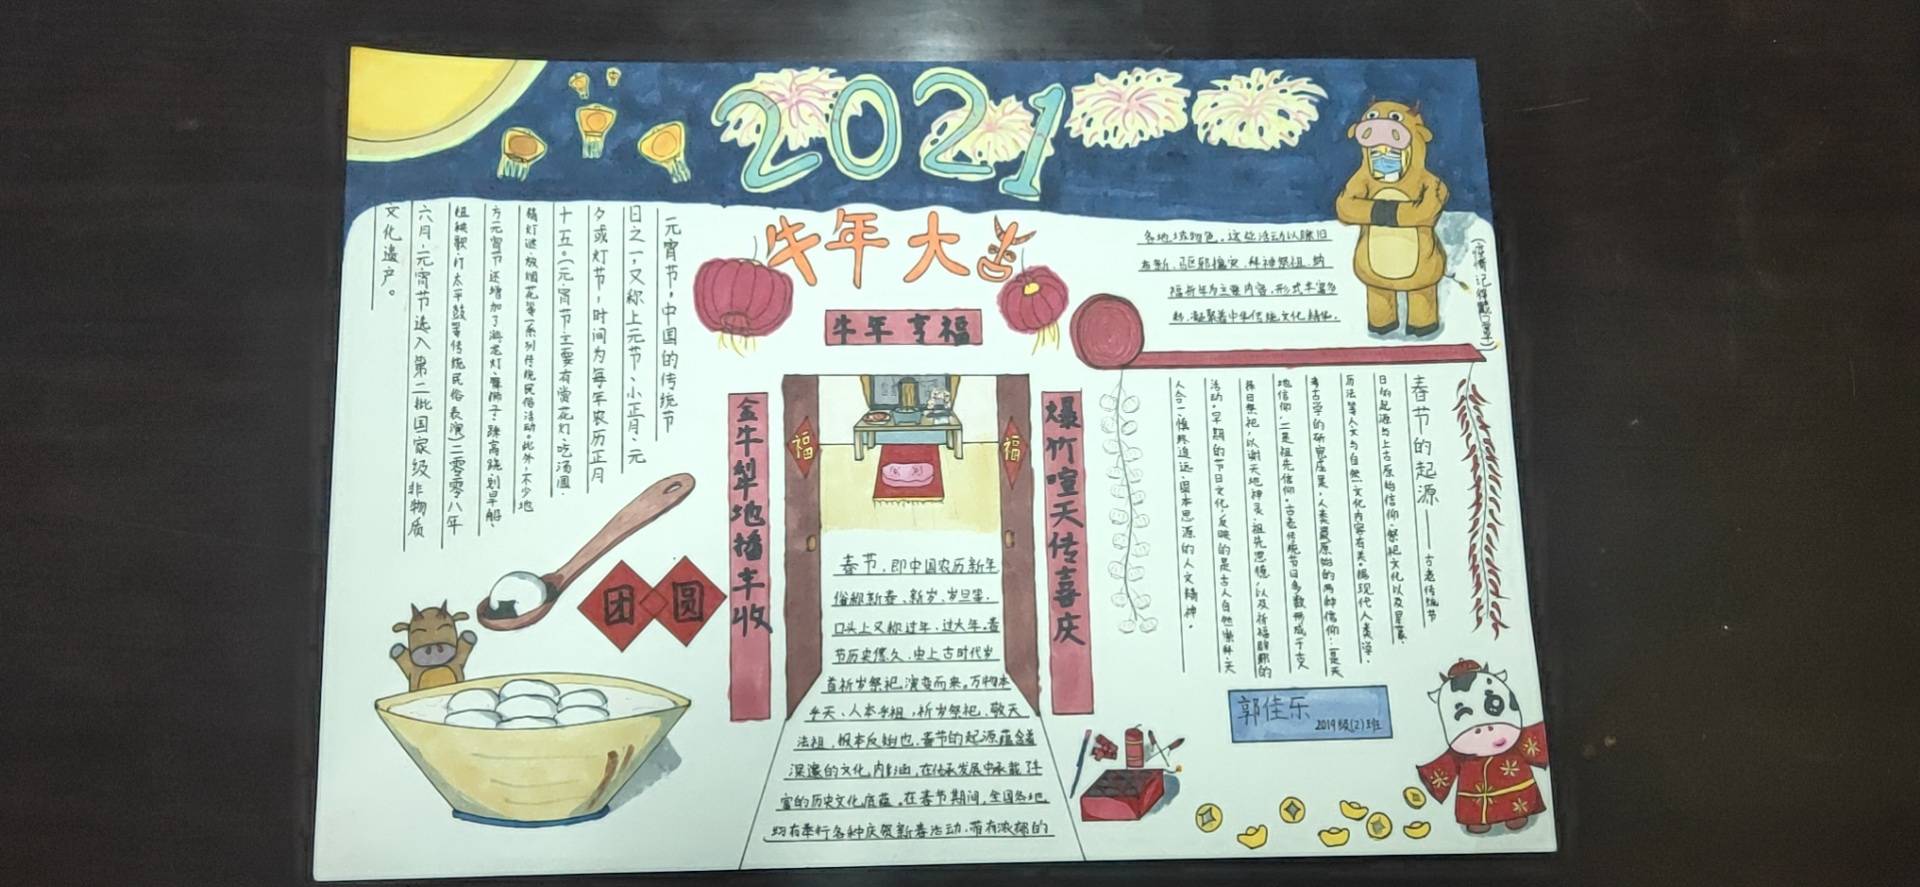 2021
牛年大吉
牛年亨福
金牛犁地播丰收
爆竹喧天传喜庆
福
福
元宵节，中国的传统节
日之一，又称上元节、小正月、元
夕或灯节，时间为每年农历正月
十五。（元宵节主要有赏花灯、吃汤圆、
猜灯谜、放烟花等一系列传统民俗活动。此外，不少地
方元宵节还增加了游龙灯、舞狮子、踩高跷、划旱船、
扭秧歌、打太平鼓等传统民俗表演）二零零八年
六月，元宵节选入第二批国家级非物质
文化遗产。
团圆
春节，即中国农历新年
俗称新春、新岁、岁旦等，
口头上又称过年、过大年。春
节历史悠久，由上古时代岁
首祈岁祭祀演变而来。万物本
乎天、人本乎祖，祈岁祭祀、敬天
法祖，报本反始也。春节的起源蕴含着
深邃的文化内涵，在传承发展中承载了丰
富的历史文化底蕴。在春节期间，全国各地
均有举行各种庆贺新春活动，带有浓郁的
各地域特色。这些活动以除旧
布新、驱邪攘灾、拜神祭祖、纳
福祈年为主要内容，形式丰富多
彩，凝聚着中华传统文化精华。
（疫情记得戴口罩）
春节的起源——古老传统节
日的起源与上古原始信仰、祭祀文化以及星象、
历法等人文与自然文化内容有关。据现代人类学、
考古学的研究成果，人类最原始的两种信仰：一是天
地信仰，二是祖先信仰。古老传统节日多数形成于古人
择日祭祀，以谢天地神灵、祖先恩德，以及祈福辟邪的
活动。早期的节日文化，反映的是古人自然崇拜、天
人合一、慎终追远、固本思源的人文精神。
郭佳乐
2019级(2)班